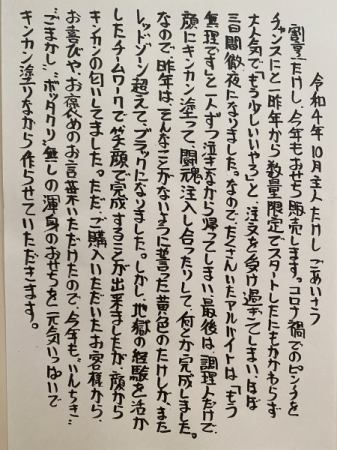 令和4年10月主人たけし ごあいさつ
「割烹たけし」今年もおせち販売します。コロナ禍でのピンチを
チャンスにと一昨年から数量限定でスタートしたにもかかわらず
大人気で「もう少しいいやろ」と、注文を受け過ぎてしまい、ほぼ
三日間徹夜になりました。なのでたくさんいたアルバイトは「もう
無理です」と一人ずつ泣きながら帰ってしまい、最後は、調理人だけで、
顔にキンカン塗って、闘魂注入し合ったりして、何とか完成しました。
なので昨年は、そんなことがないように誓った黄色のたけしが、また
レッドゾーン超えて、ブラックになりました。しかし、地獄の経験を活か
したチームワークで、笑顔で完成することが出来ましたが、顔から
キンカンの匂いしてました。ただ、ご購入いただいたお客様から、
お喜びや、お褒めのお言葉いただけたので、今年も、"いんちき"
"ごまかし""ボッタクリ"無しの渾身のおせちを、元気いっぱいで
キンカン塗りながら作らせていただきます。